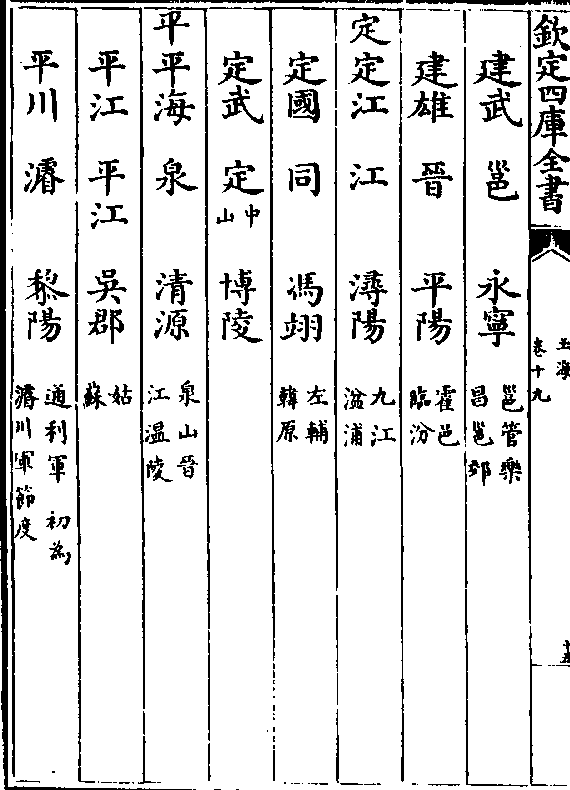 欽定四庫全書 玉海 卷十九
建武 邕 永寧 邕管樂昌邕郊
建雄 晉 平陽 霍邑臨汾
定 定江 江 潯陽 九江湓浦
定國 同 馮翊 左輔韓原
定武 定 中山 博陵
平 平海 泉 清源 泉山晉江温陵
平江 平江 吳郡 姑蘇
平川 濬 黎陽 通利軍 初為濬川軍節度